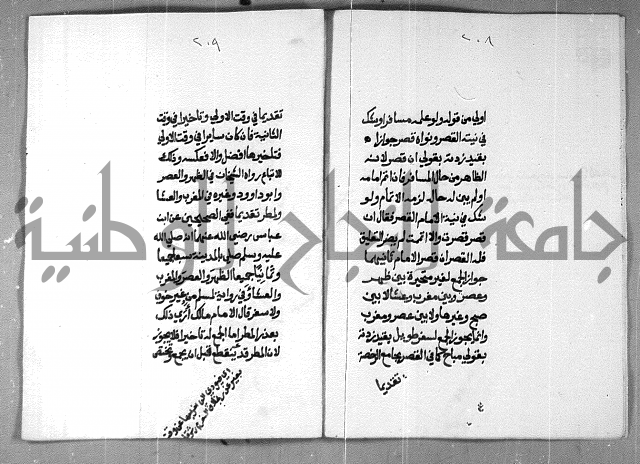 ٢٠٨
اولى من قوله ولو علمه مسافرا وشك
في نيته القصر ونواه قصر جوازا
بقيد زدته بقولي ان قصر لانه
الظاهر من حال المسافر فاذا تم امامه
او لم يبن له حاله لزمه الاتمام ولو
شك في نية الامام القصر فقال ان
قصر قصرت والا اتممت لم يضر التعليق
فله القصر ان قصر الامام ثانيهما
جواز الجمع لغير متحيرة بين ظهر
وعصر وبين مغرب وعشا لا بين
صبح وغيرها ولا بين عصر ومغرب
وانما يجوز الجمع لسفر طويل بقيد زدته
بقولي مباح كما في القصر بجامع الرخصة
تقديما
٢٠٩
تقديما في وقت الاولى وتاخيرا في وقت
الثانية فان كان سايرا في وقت الاولى
فتاخيرها افضل والا فعكسه وذلك
للاتباع رواه الشيخان في الظهر والعصر
وابو داوود وغيره في المغرب والعشا
ولمطر تقديما ففي الصحيحين عن ابن
عباس رضي الله عنهما انه صلى الله
عليه وسلم صلى بالمدينة سبعا جميعا
وثمانيا جميعا الظهر والعصر والمغرب
والعشا وفي رواية لمسلم من غير خوف
ولا سفر قال الامام مالك أرى ذلك
بعذر المطر اما الجمع له تاخيرا فلا يجوز
لان المطر قد ينقطع قبل ان يجمع
جامعة النجاح الوطنية